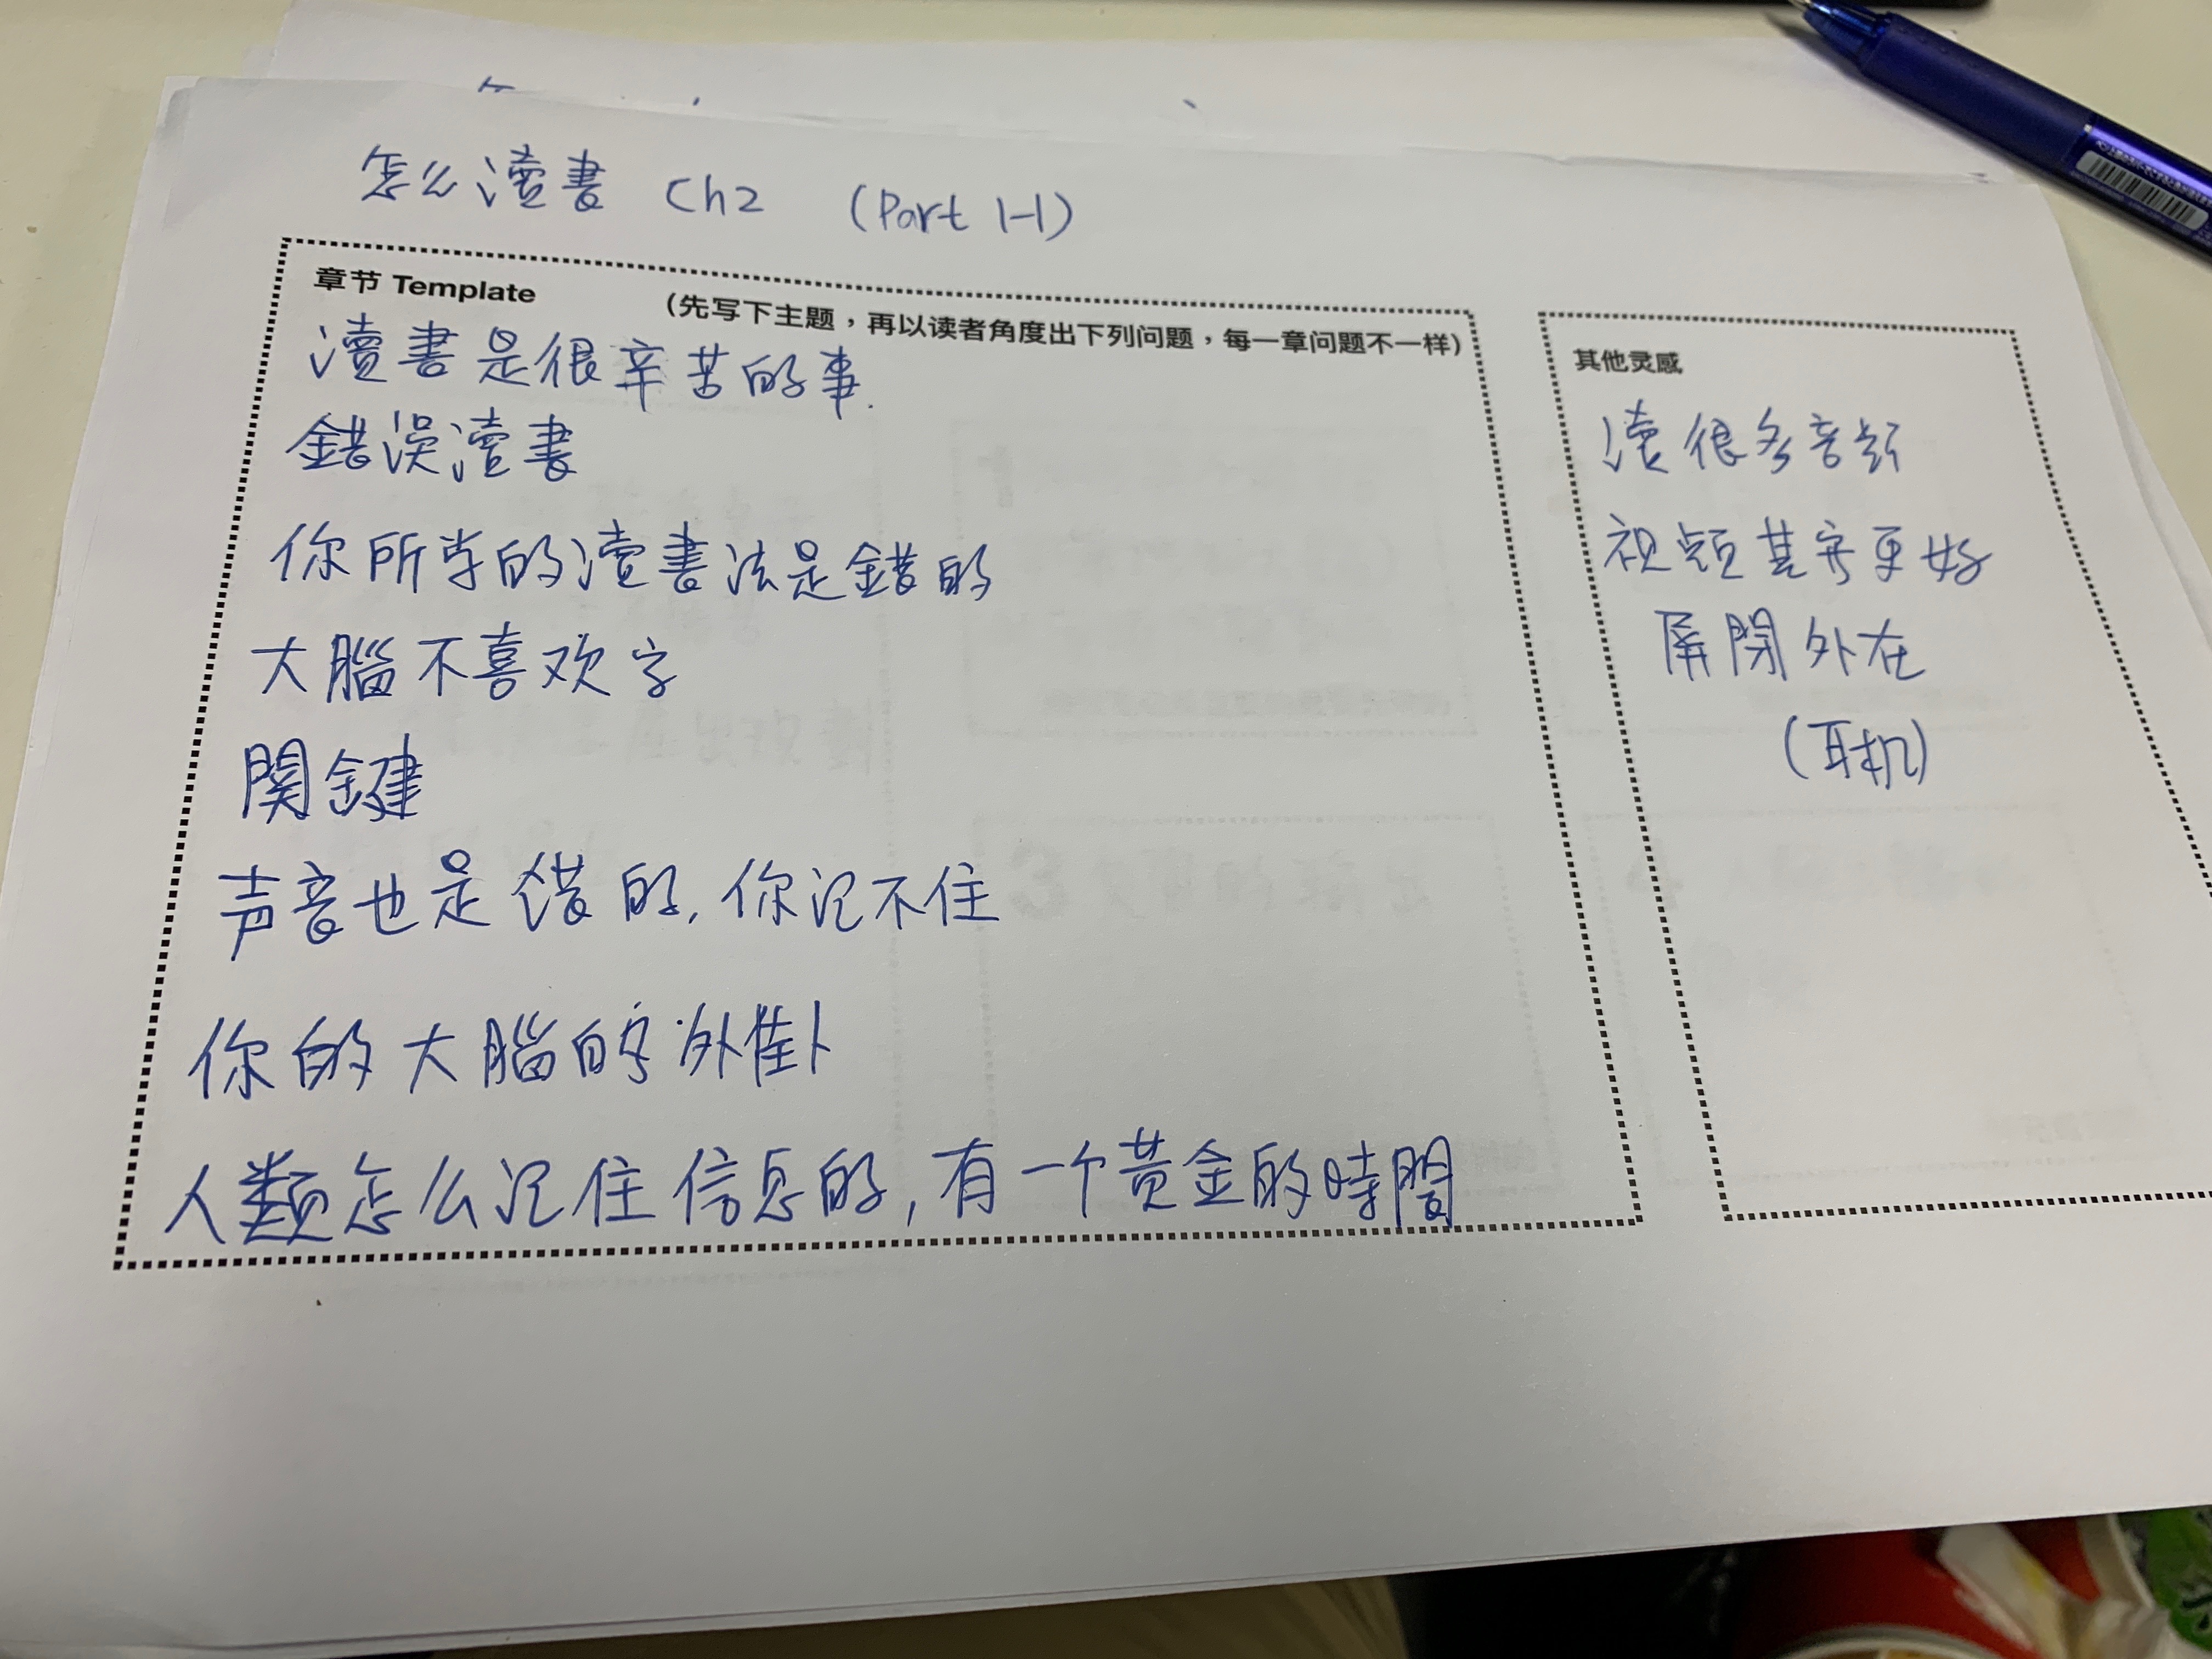 怎么讀書 Ch2 (Part 1-1)
章节 Template (先写下主题，再以读者角度出下列问题，每一章问题不一样)
讀書是很辛苦的事.
錯誤讀書
你所学的讀書法是錯的
大腦不喜欢字
関鍵
声音也是错的, 你记不住
你的大腦的外掛
人類怎么记住信息的, 有一个黄金的時間
其他灵感
讀很多音频
视频其实更好
屏閉外在
(耳机)